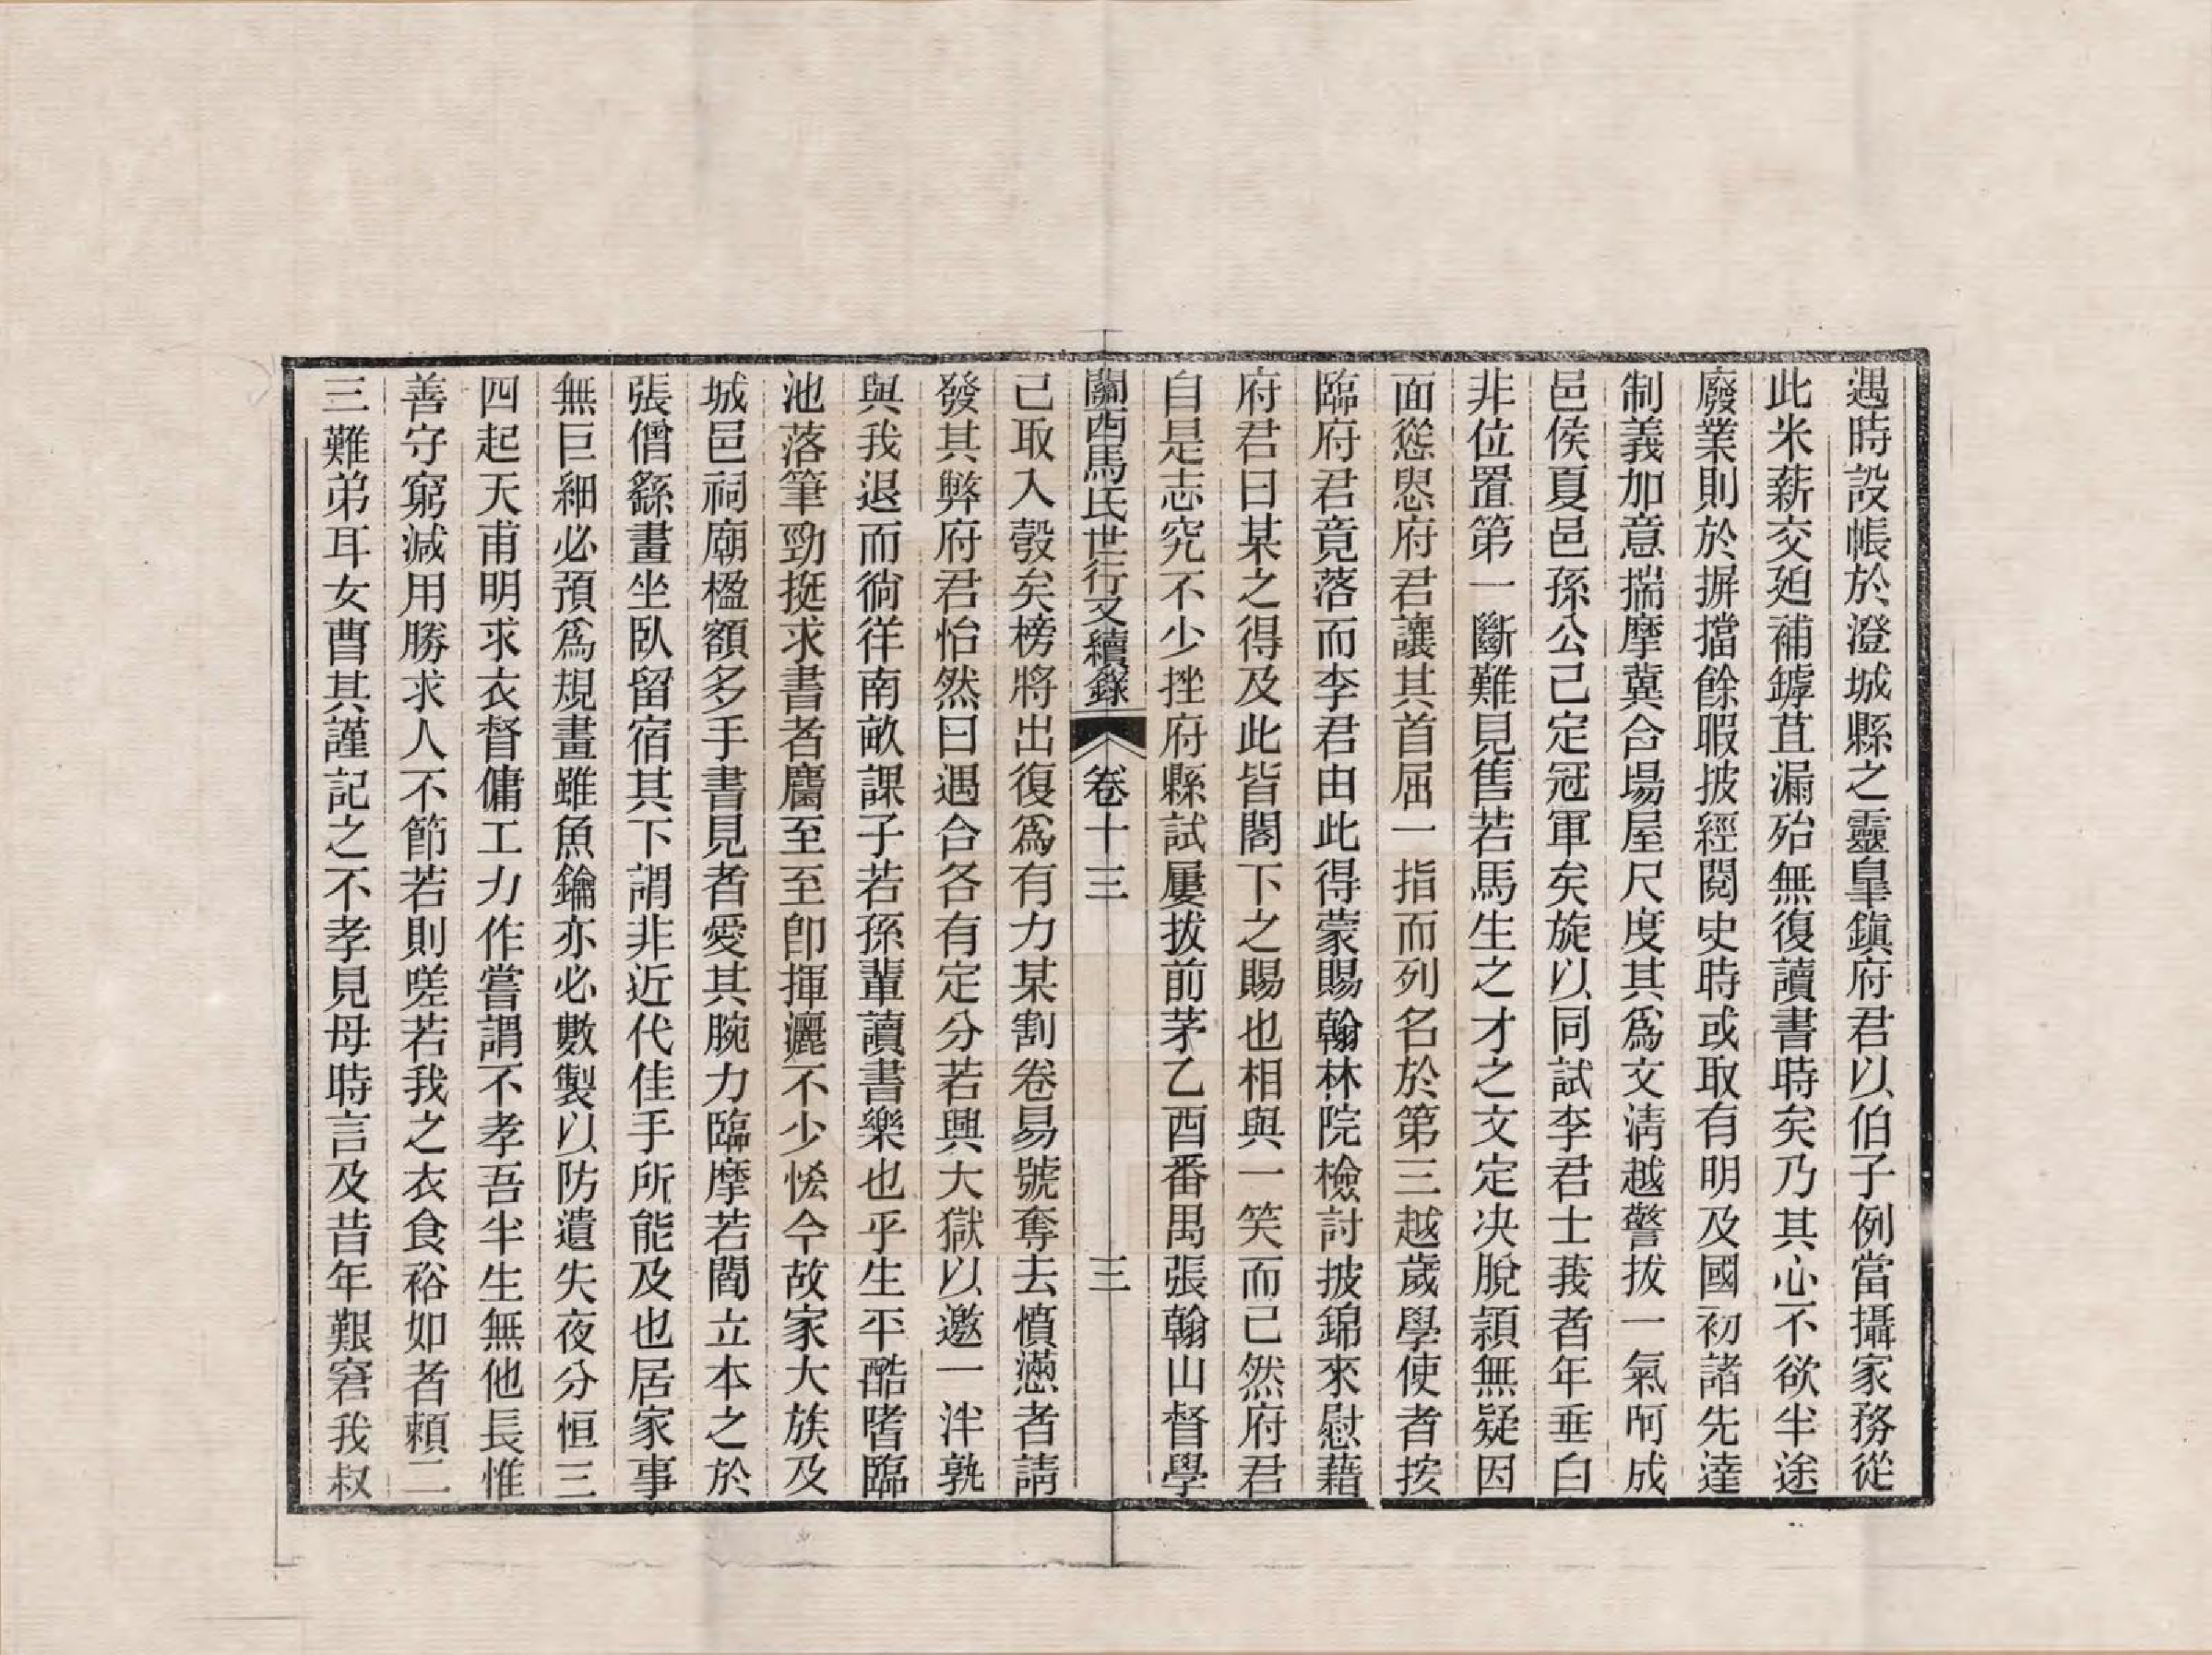 遇時設帳於澄城縣之靈臯鎭府君以伯子例當攝家務從
此米薪交廹補罅苴漏殆無復讀書時矣乃其心不欲半途
廢業則於摒擋餘暇披經閱史時或取有明及國初諸先達
制義加意揣摩冀合塲屋尺度其爲文淸越警拔一氣呵成
邑侯夏邑孫公已定冠軍矣旋以同試李君士莪者年垂白
非位置第一斷難見售若馬生之才之文定决脫穎無疑因
面慫恿府君讓其首屈一指而列名於第三越歲學使者按
臨府君竟落而李君由此得蒙賜翰林院檢討披錦來慰藉
府君曰某之得及此皆閣下之賜也相與一笑而已然府君
自是志究不少挫府縣試屢拔前茅乙酉番禺張翰山督學
關西馬氏世行文續錄 卷十三 三
已取入彀矣榜將出復爲有力某割卷易號奪去憤懣者請
發其弊府君怡然曰遇合各有定分若興大獄以邀一泮孰
與我退而徜徉南畝課子若孫輩讀書樂也乎生平酷嗜臨
池落筆勁挺求書者麕至至卽揮灑不少恡今故家大族及
城邑祠廟楹額多手書見者愛其腕力臨摩若閻立本之於
張僧繇畫坐臥留宿其下謂非近代佳手所能及也居家事
無巨細必預爲規畫雖魚鑰亦必數製以防遺失夜分恒三
四起天甫明求衣督傭工力作嘗謂不孝吾半生無他長惟
善守窮減用勝求人不節若則嗟若我之衣食裕如者頼二
三難弟耳女曹其謹記之不孝見母時言及昔年艱窘我叔